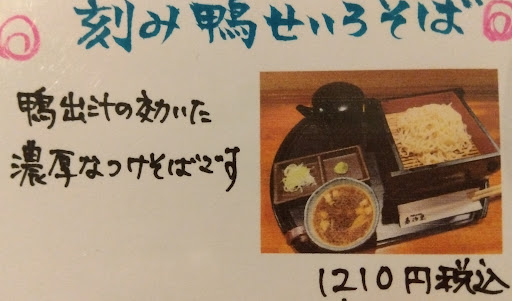 刻み鴨せいろそば
鴨出汁の効いた
濃厚なつけそばです
1210円税込